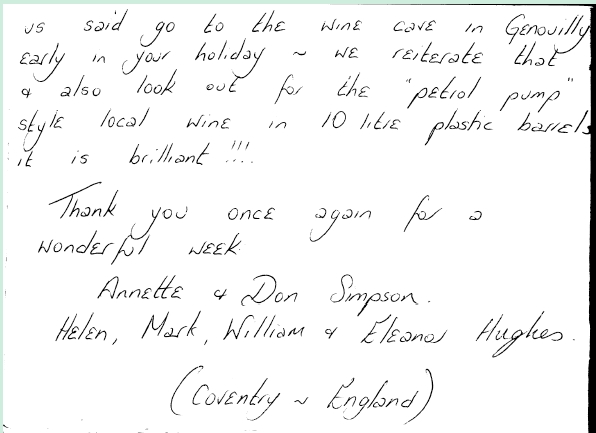 us said go to the wine cave in Genouilly
early in your holiday ~ we reiterate that
& also look out for the "petrol pump"
style local wine in 10 litre plastic barrels
it is brilliant !!!!
Thank you once again for a
wonderful week
Annette & Don Simpson.
Helen, Mark, William & Eleanor Hughes.
(Coventry ~ England)